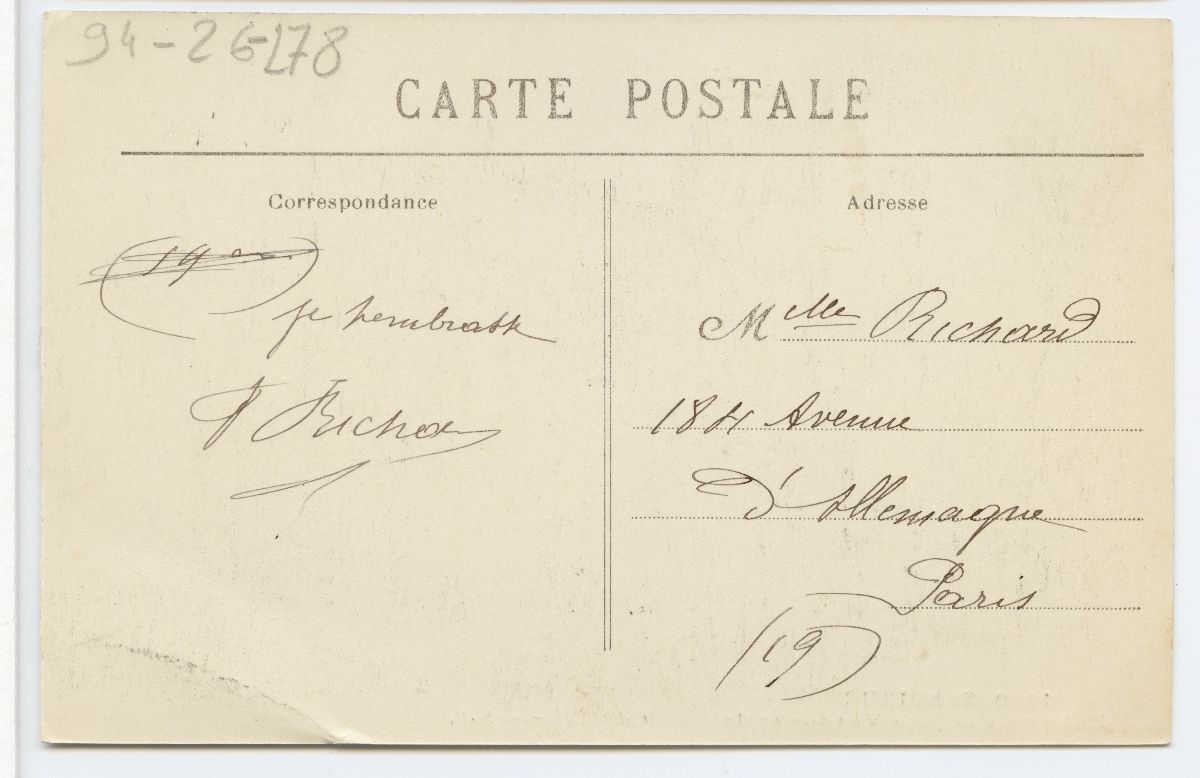 94-26478
CARTE POSTALE
Correspondance
Adresse
(19em)
je t'embrasse
P Richard
Mlle Richard
184 Avenue
D'Allemagne
Paris
(19)